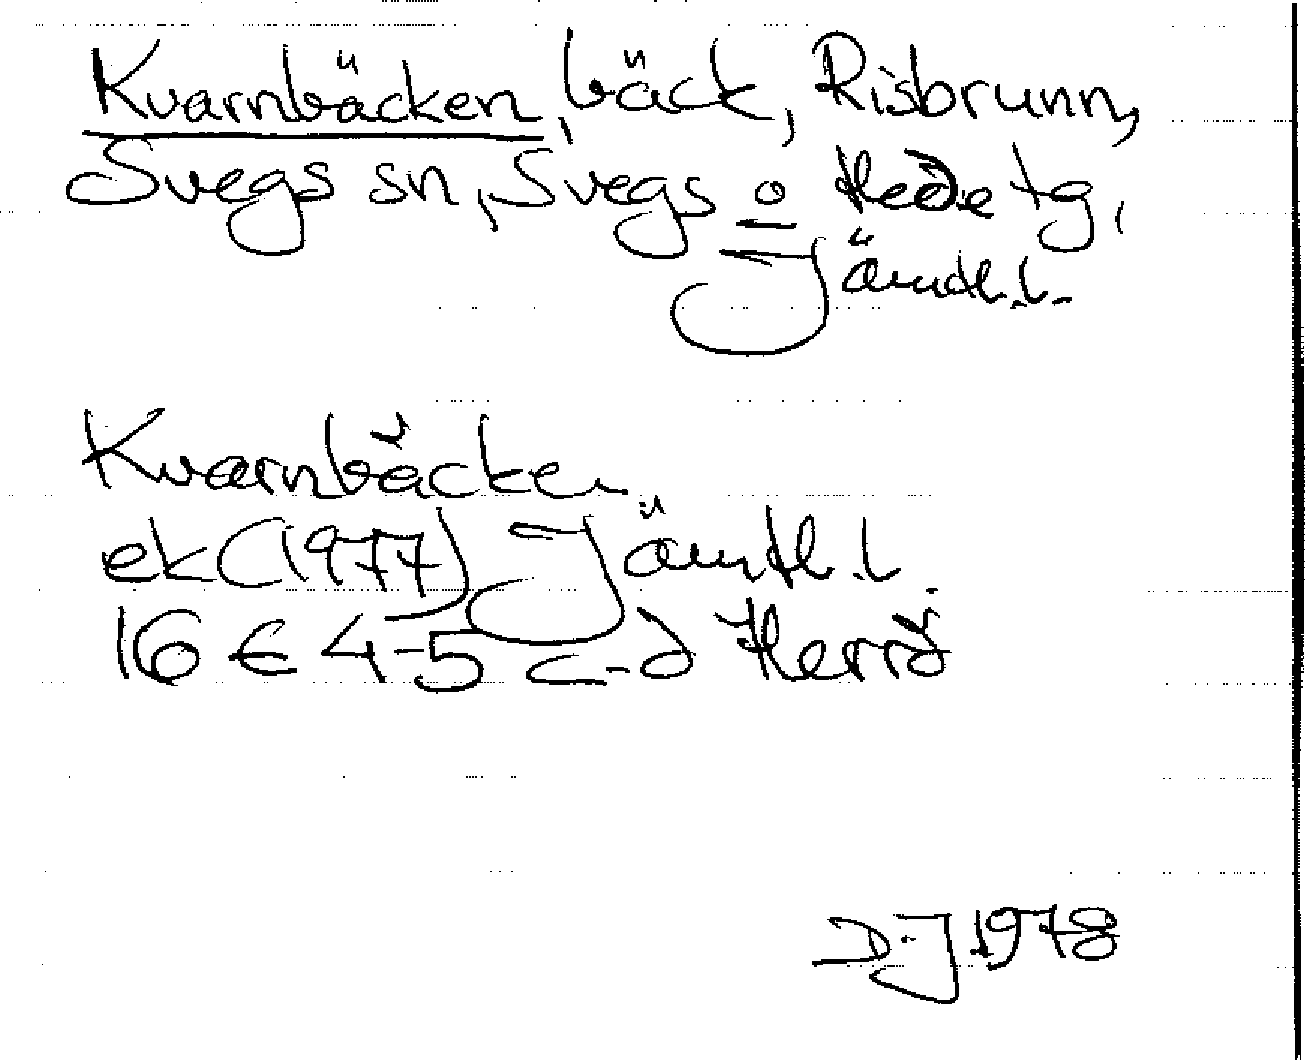 Kvarnbäcken, bäck, Risbrunn,
Svegs sn, Svegs o Hede tg,
Jämtl.l.
Kvarnbäcken
ek (1977) Jämtl.l.
16 E 4-5 c-d Herrö
DJ 1978